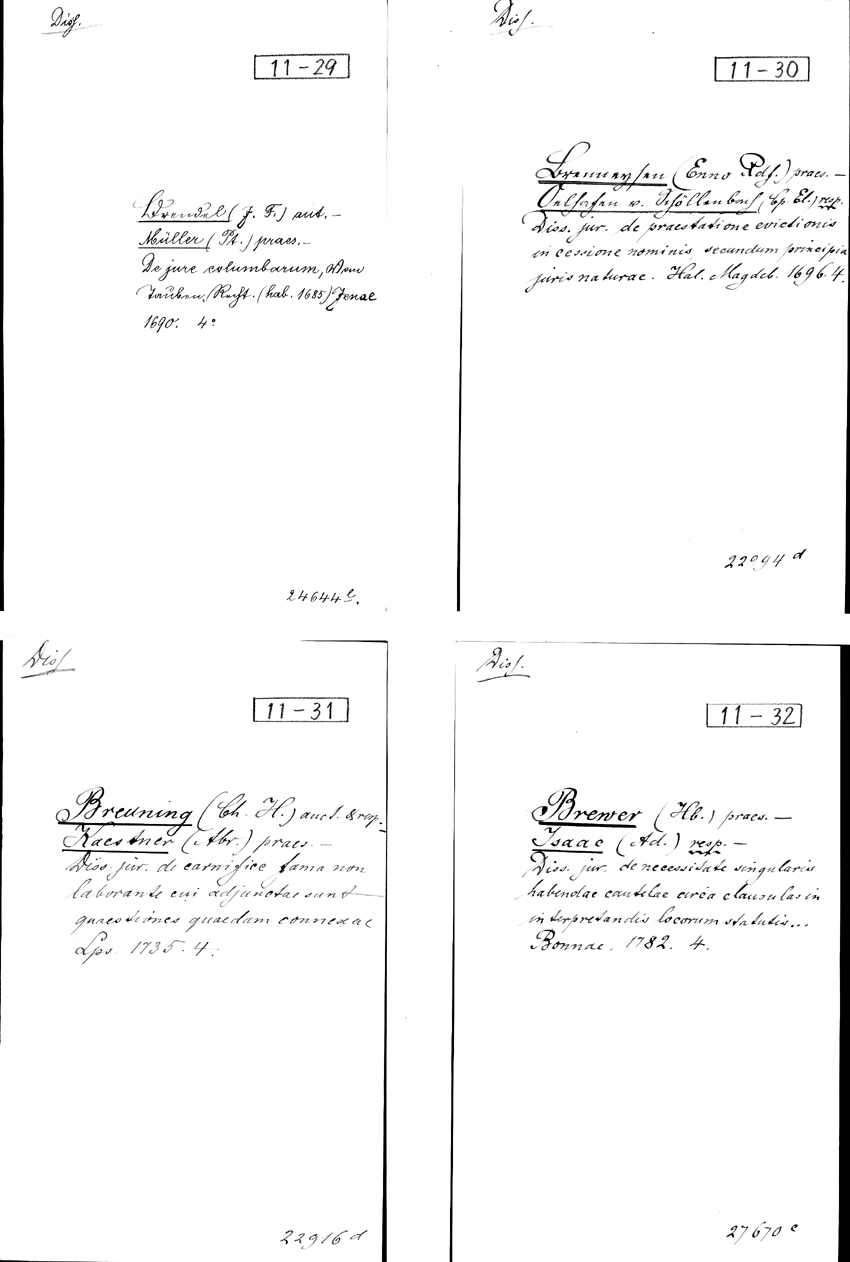 Diss.
11-29
Brendel (J. F.) aut. –
Müller (Pt.) praes. –
De jure columbarum, Vom
Tauben-Recht. (hab. 1685) Jenae
1690. 4°
24644 e.
Diss.
11-30
Brenneysen (Enno Rdf.) praes. –
Oelhafen v. Schöllenbach (Cp El.) resp.
Diss. jur. de praestatione evictionis
in cessione nominis, secundum principia
juris naturae. Hal. Magdeb. 1696. 4.
22994 d
Diss
11-31
Breuning (Ch. H.) auct. & resp. –
Kaestner (Abr.) praes. –
Diss. jur. de carnifice fama non
laborante cui adjunctae sunt
quaestiones quaedam connexae
Lps. 1735. 4.
22916 d
Diss.
11-32
Brewer (Hb.) praes. –
Isaac (Ad.) resp. –
Diss. jur. de necessitate singularis
habendae cautelae circa clausulas in
interpretandis locorum statutis...
Bonnae. 1782. 4.
27670 c